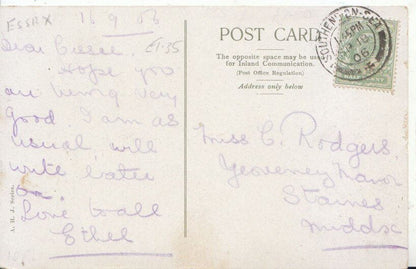 ESSEX 16 9 06
£1.35
Hope you
are being very
good I am as
usual will
write later
on.
Love to all
Ethel
A. H. J. Series.
POST CARD
The opposite space may be used
for Inland Communication.
(Post Office Regulation.)
Address only below
SOUTHEND-ON-SEA
06
HALF
Miss C. Rodgers
Yeoveney Manor
Staines
Middsx